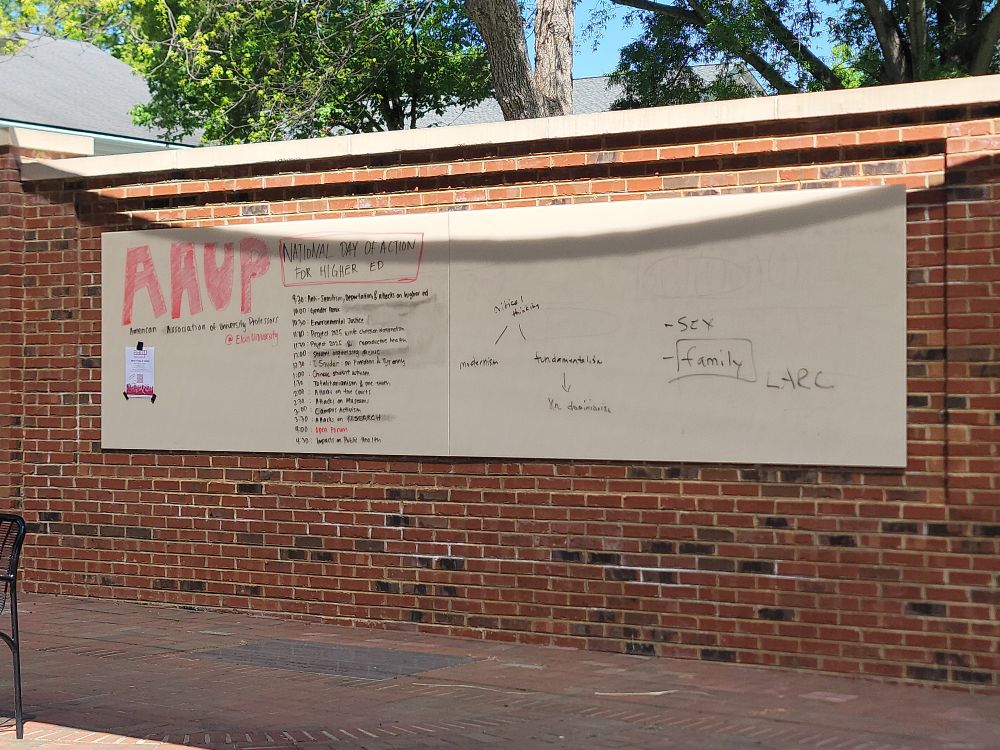 AAUP
American Association of University Professors
@ Elon University
NATIONAL DAY OF ACTION
FOR HIGHER ED
9:30: Anti-Semitism, Deportation, & attacks on higher ed
10:00: Gender Panic
10:30: Environmental Justice
11:00: Project 2025 white christian nationalism
11:30: Project 2025 & reproductive health
12:00: Student organizing @ Elon
12:30: T. Snyder - on Freedom & Tyranny
1:00: Chinese student activism
1:30: Totalitarianism & one truth
2:00: Attacks on the courts
2:30: Attacks on Museums
3:00: Campus Activism
3:30: Attacks on RESEARCH
4:00: OPEN Forum
4:30: Impacts on Public Health
critical
thinking
modernism
fundamentalism
Xn dominionism
- SEX
- family
LARC